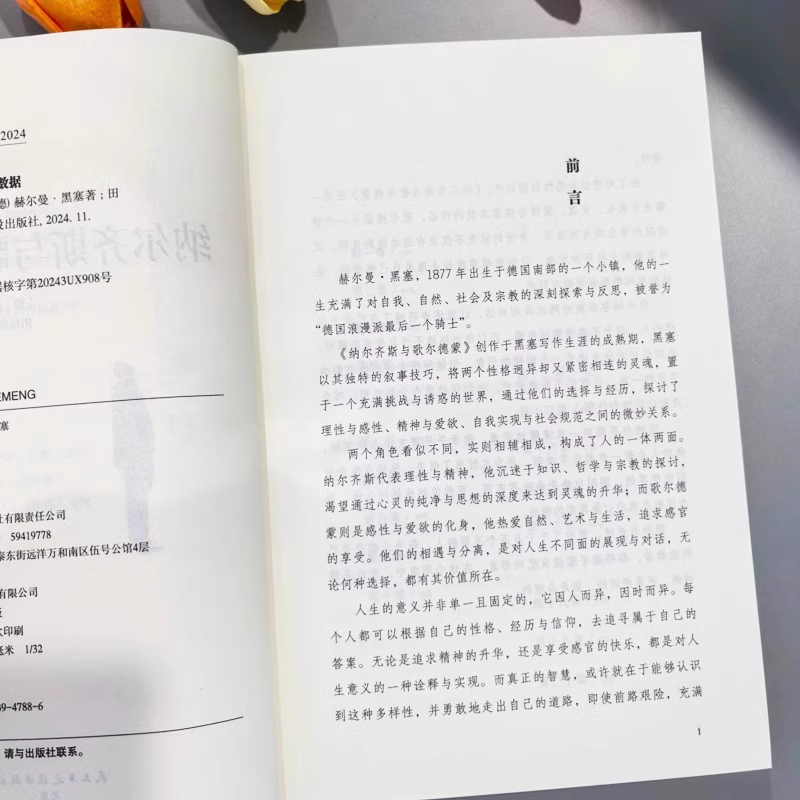 2024
数据
德) 赫尔曼·黑塞著；田
设出版社, 2024. 11.
核字第20243UX908号
EMENG
塞
社有限责任公司
59419778
泰东街远洋万和南区伍号公馆4层
有限公司
版
次印刷
毫米 1/32
69-4788-6
请与出版社联系。
前
言
赫尔曼·黑塞，1877 年出生于德国南部的一个小镇，他的一
生充满了对自我、自然、社会及宗教的深刻探索与反思，被誉为
“德国浪漫派最后一个骑士”。
《纳尔齐斯与歌尔德蒙》创作于黑塞写作生涯的成熟期，黑塞
以其独特的叙事技巧，将两个性格迥异却又紧密相连的灵魂，置
于一个充满挑战与诱惑的世界，通过他们的选择与经历，探讨了
理性与感性、精神与爱欲、自我实现与社会规范之间的微妙关系。
两个角色看似不同，实则相辅相成，构成了人的一体两面。
纳尔齐斯代表理性与精神，他沉迷于知识、哲学与宗教的探讨，
渴望通过心灵的纯净与思想的深度来达到灵魂的升华；而歌尔德
蒙则是感性与爱欲的化身，他热爱自然、艺术与生活，追求感官
的享受。他们的相遇与分离，是对人生不同面的展现与对话，无
论何种选择，都有其价值所在。
人生的意义并非单一且固定的，它因人而异，因时而异。每
个人都可以根据自己的性格、经历与信仰，去追寻属于自己的
答案。无论是追求精神的升华，还是享受感官的快乐，都是对人
生意义的一种诠释与实现。而真正的智慧，或许就在于能够认识
到这种多样性，并勇敢地走出自己的道路，即使前路艰险，充满
1